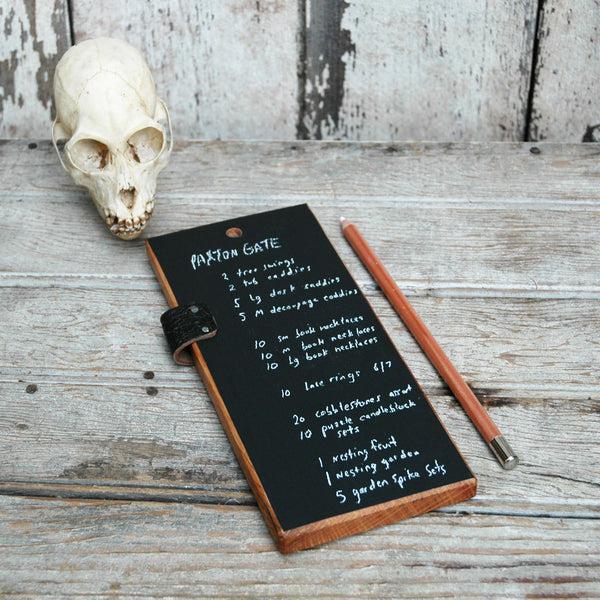 PAXTON GATE
2 tree swings
2 tub caddies
5 lg desk caddies
5 M decoupage caddies
10 sm book necklaces
10 m book necklaces
10 lg book necklaces
10 lace rings 6/7
20 cobblestones asst
10 puzzle candleblock
sets
1 Nesting fruit
1 Nesting garden
5 garden Spike Sets